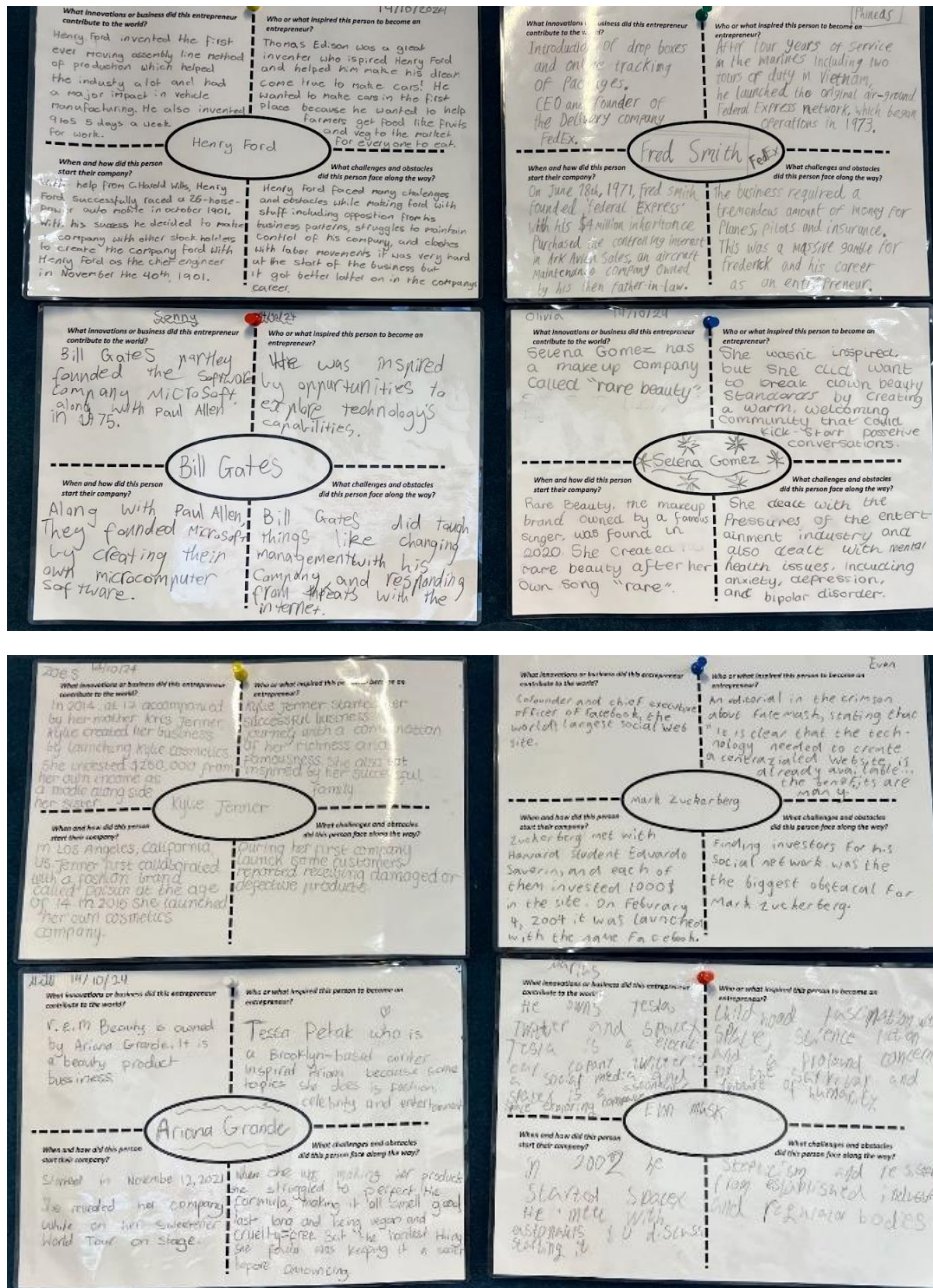 14/10/2024
What innovations or business did this entrepreneur
contribute to the world?
Henry Ford invented the first
ever moving assembly line method
of production which helped
the industy a lot and had
a major impact in vehicle
manufacturing. He also invented
9 to 5 5 days a week
for work.
Who or what inspired this person to become an
entrepreneur?
Thomas Edison was a great
inventer who ispired Henry Ford
and helped him make his dream
come true to make cars! He
wanted to make cars in the first
place because he wanted to help
farmers get food like fruits
and veg to the market
for everyone to eat.
Henry Ford
When and how did this person
start their company?
With help from C.Harold Wills, Henry
Ford successfully raced a 26-horse-
power auto mobile in october 1901.
With his success he decided to make
company with other stock holders
to create the company Ford with
Henry Ford as the chief engineer
in November the 40th 1901.
What challenges and obstacles
did this person face along the way?
Henry Ford faced many challenges
and obstacles while making ford with
stuff including opposition from his
business paterns, struggles to maintain
control of his company, and clashes
with labor movements it was very hard
at the start of the business but
it got better latter on in the companys
career.
Phineas
What innovations or business did this entrepreneur
contribute to the world?
Introduction of drop boxes
and online tracking
of Packages.
CEO and founder of
the Delivery company
FedEx.
Who or what inspired this person to become an
entrepreneur?
After four years of service
in the marines including two
tours of duty in Vietnam,
he launched the original air-ground
Federal Express network, which began
operations in 1973.
Fred Smith FedEx
When and how did this person
start their company?
On June 18th, 1971, Fred smith
founded 'federal Express'
with his $4 million inheritance
Purchased the controlling interest
in Ark Avion Sales, an aircraft
Maintenance company owned
by his then father-in-law.
What challenges and obstacles
did this person face along the way?
The business required a
tremendous amount of money for
Planes, pilots and insurance.
This was a massive gamble for
frederick and his career
as an entrepreneur.
Sonny
What innovations or business did this entrepreneur
contribute to the world?
Bill Gates partley
founded the Software
company Microsoft
along with Paul Allen
in 1975.
Who or what inspired this person to become an
entrepreneur?
He was inspired
by oppurtunities to
explore technology's
capabilities.
Bill Gates
When and how did this person
start their company?
Along with Paul Allen
They founded Microsoft
by creating their
own microcomputer
Software.
What challenges and obstacles
did this person face along the way?
Bill Gates did tough
things like changing
management with his
Company, and responding
from threats with the
internet.
Olivia 14/10/24
What innovations or business did this entrepreneur
contribute to the world?
Selena Gomez has
a makeup company
Called "rare beauty"
Who or what inspired this person to become an
entrepreneur?
She wasn't inspired,
but she did want
to break down beauty
Standards by creating
a warm, welcoming
community that could
kick-start possetive
conversations.
Selena Gomez
When and how did this person
start their company?
Rare Beauty, the makeup
brand owned by a famous
singer, was found in
2020. She created
rare beauty after her
own song "rare".
What challenges and obstacles
did this person face along the way?
She dealt with the
Pressures of the entert-
ainment industry and
also dealt with mental
health issues, including
anxiety, depression,
and bipolar disorder.
Zoe S
What innovations or business did this entrepreneur
contribute to the world?
In 2014 at 17 accompanied
by her mother Kris Jenner
Kylie created her business
by launching Kylie cosmetics
She invested $250,000 from
her own income as
a modle along side
her sister.
Who or what inspired this person to become an
entrepreneur?
Kylie Jenner started her
successful business
journey with a combination
of her richness and
famousness. She also got
inspired by her successful
family
Kylie Jenner
When and how did this person
start their company?
In Los Angeles, California,
US. Jenner first collaborated
with a fashion brand
called Pacsun at the age
of 14 in 2016 she launched
her own cosmetics
company.
What challenges and obstacles
did this person face along the way?
During her first company
launch some customers
reported receiving damaged or
defective products.
Evan
What innovations or business did this entrepreneur
contribute to the world?
Cofounder and chief executive
officer of Facebook, the
worlds largest social web
site.
Who or what inspired this person to become an
entrepreneur?
An editorial in the crimson
about Facemash, stating that
"It is clear that the tech-
nology needed to create
a centrazialed website is
already available...
the benefits are
many.
Mark Zuckerberg
When and how did this person
start their company?
Zuckerberg met with
Harvard Student Eduardo
Saverin, and each of
them invested 1000$
in the site. On Feburary
4, 2004 it was launched
with the name Facebook.
What challenges and obstacles
did this person face along the way?
Finding investors for his
social network was the
the biggest obstacal for
Mark Zuckerberg.
14/10/24
What innovations or business did this entrepreneur
contribute to the world?
r.e.m Beauty is owned
by Ariana Grande. It is
a beauty product
bussiness.
Who or what inspired this person to become an
entrepreneur?
Tessa Petak who is
a Brooklyn-based writer
inspired Ariana because some
topics she does is fashion,
celebrity and entertainment
Ariana Grande
When and how did this person
start their company?
Started in November 12, 2021
She revealed her company
while on her sweetener
World Tour on stage.
What challenges and obstacles
did this person face along the way?
When she was making her products
she struggled to perfect the
formula, making it all smell good
last long and being vegan and
cruelty-free. But the hardest thing
she found was keeping it a secret
before announcing.
What innovations or business did this entrepreneur
contribute to the world?
He owns Tesla,
Twitter and SpaceX
Tesla is a electric
car company twitter is
a social media and
spaceX is a
space exploring company
Who or what inspired this person to become an
entrepreneur?
Childhood fascination with
Space, science fiction
and a profound concern
for the survival and
future of humanity.
Elon musk
When and how did this person
start their company?
in 2002 he
Started SpaceX
He met with
to discuss
starting it
What challenges and obstacles
did this person face along the way?
Skepticism and
from established industry
and regulator bodies